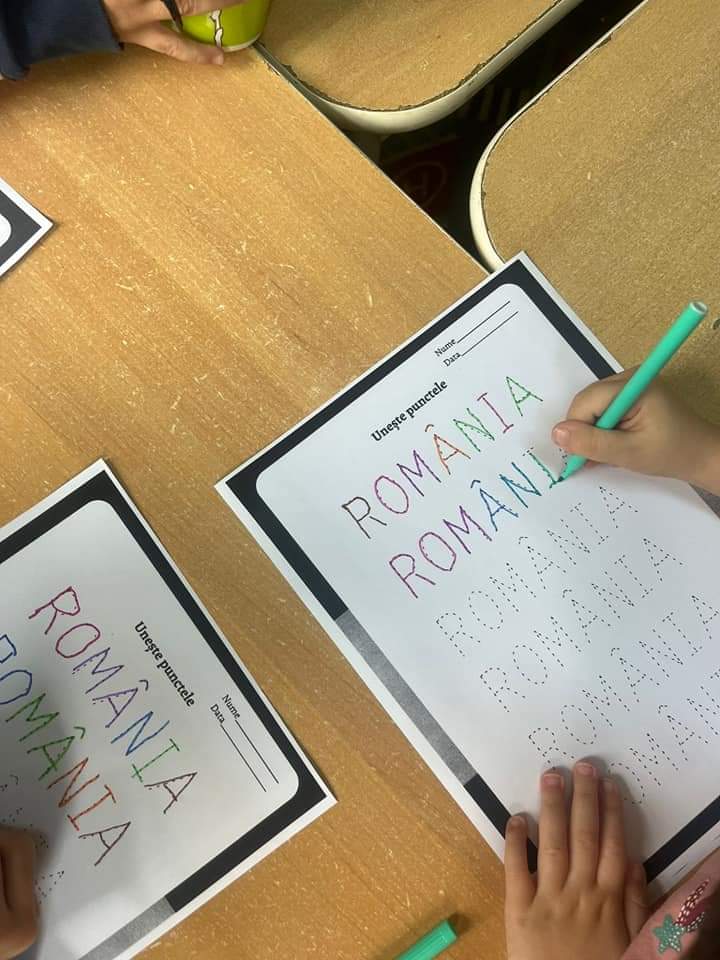 Nume
Data
Unește punctele
ROMÂNIA
ROMÂNIA
ROMÂNIA
ROMÂNIA
ROMÂNIA
OMÂN
Nume
Data
Unește punctele
ROMÂNIA
ROMÂNIA